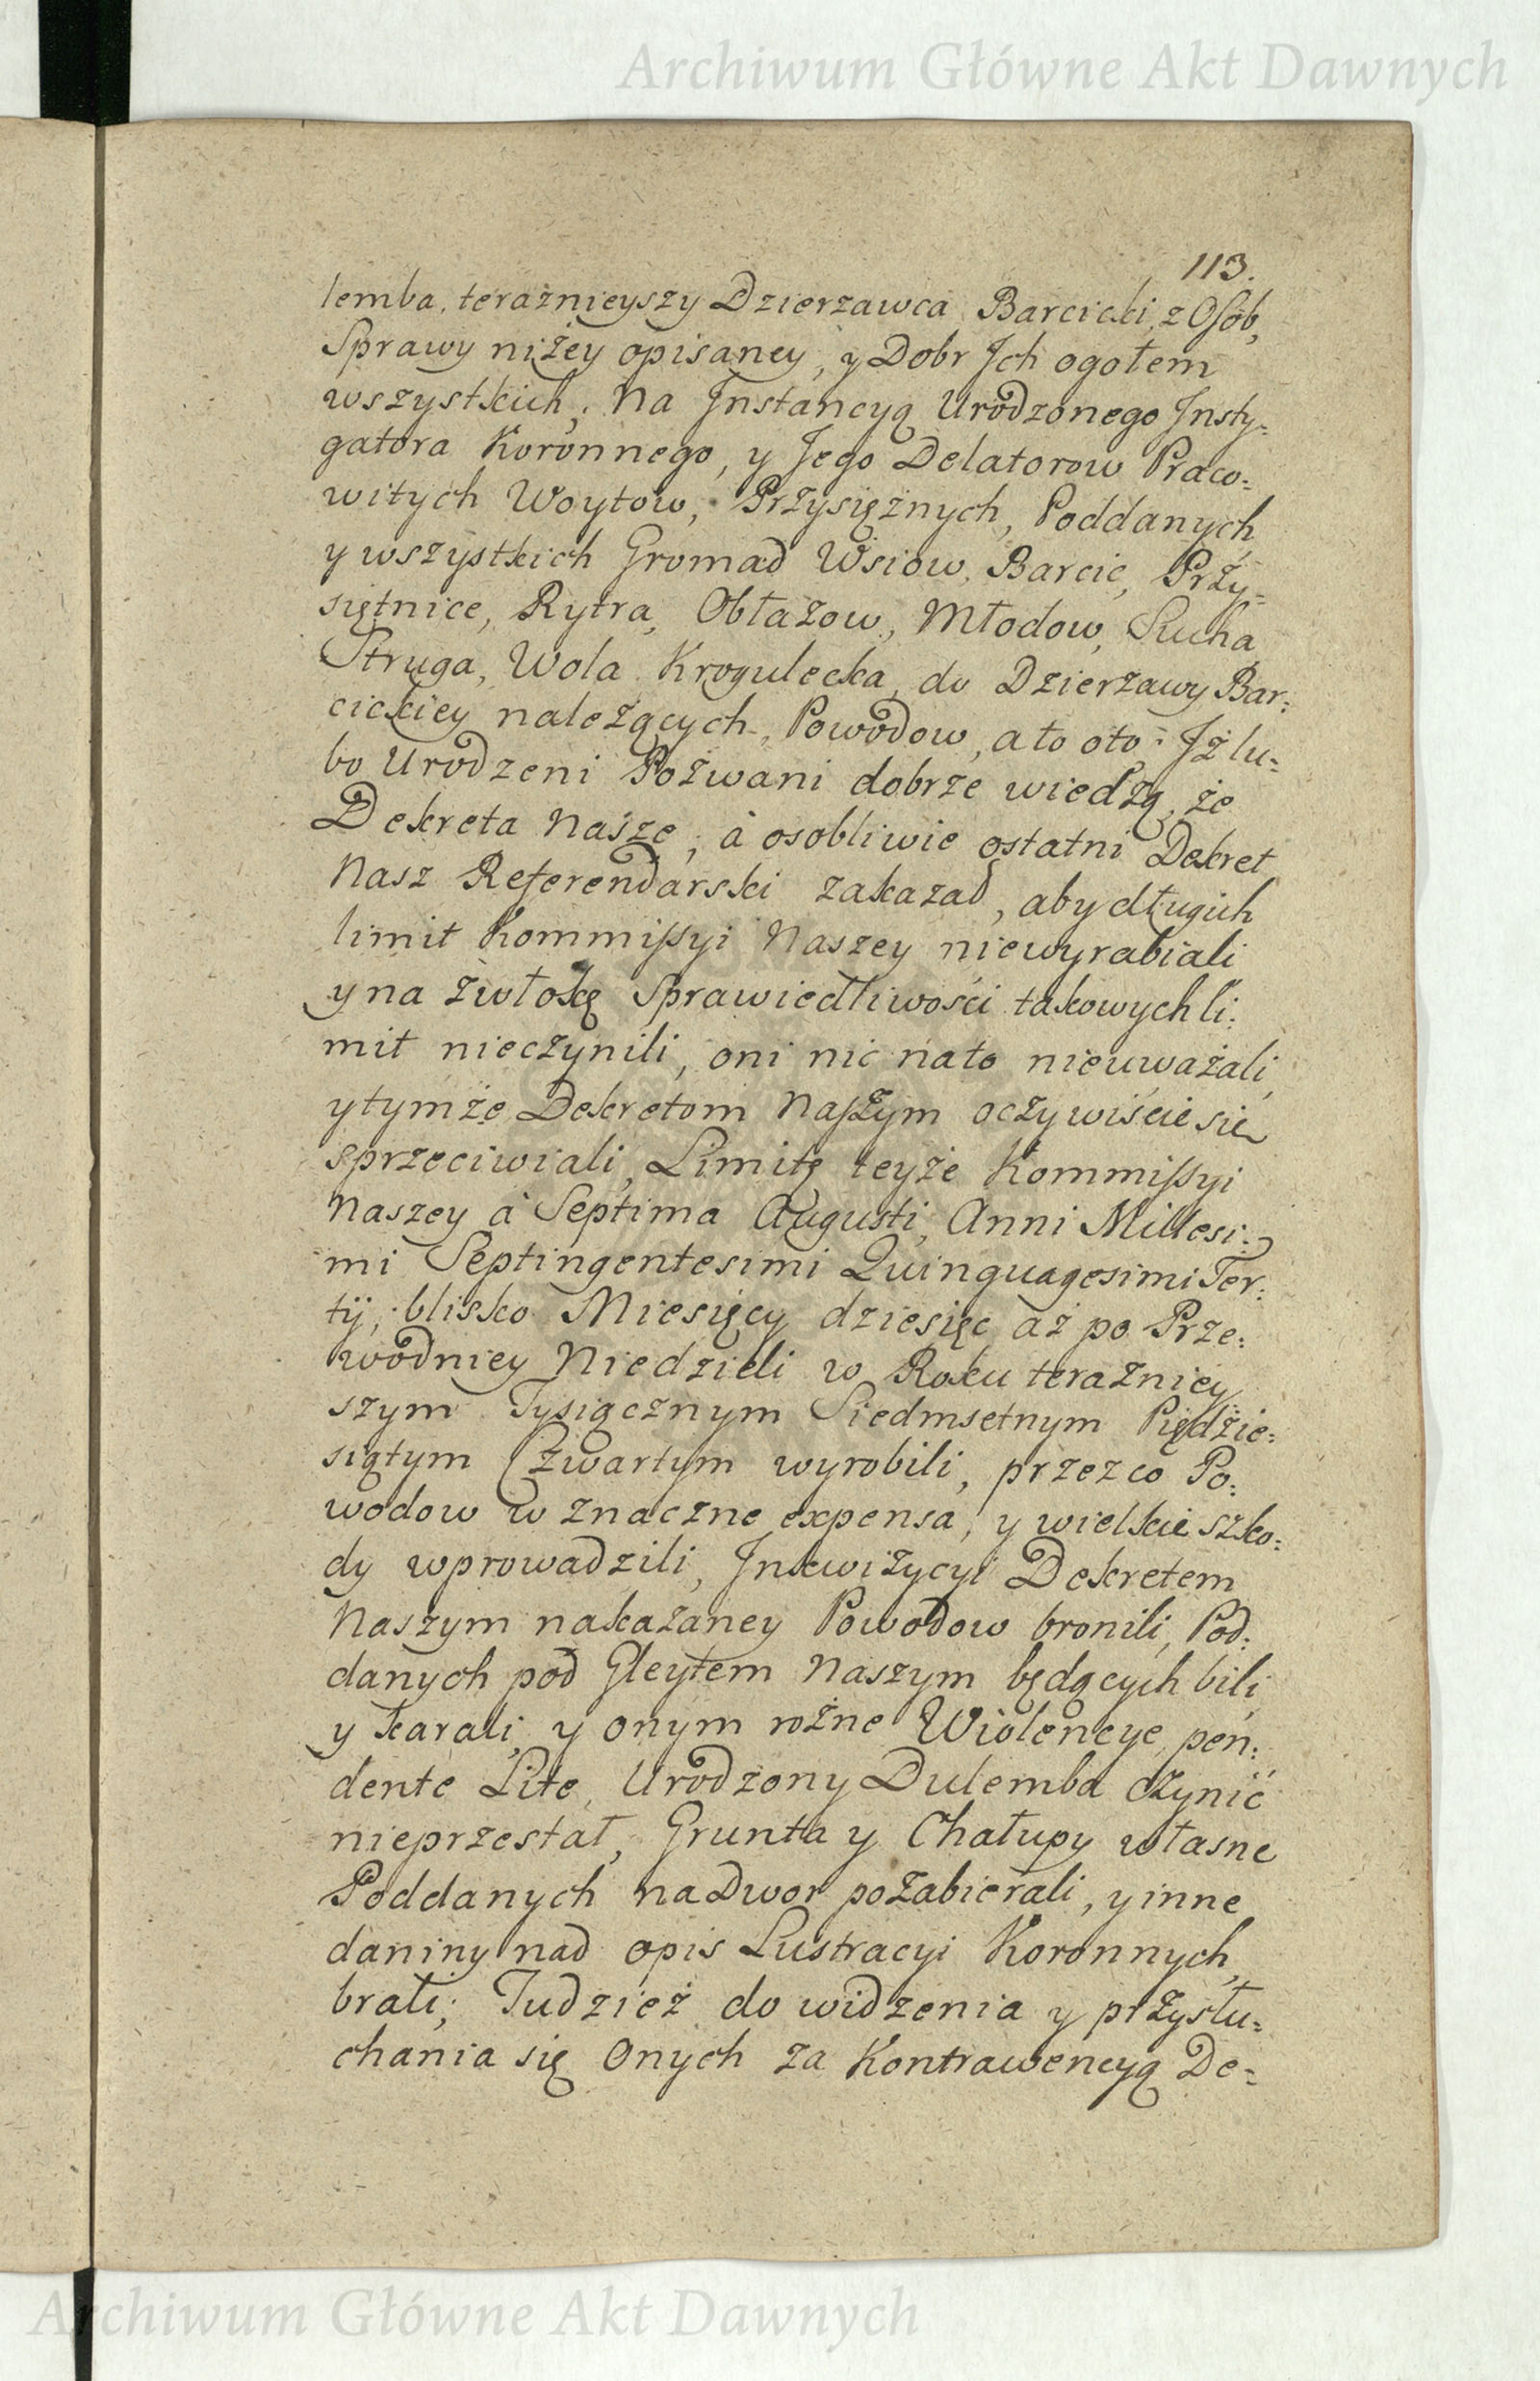 Archiwum Główne Akt Dawnych
113.
lemba, teraznieyszy Dzierzawca Barcicki, z Osób,
Sprawy niżey opisaney, y Dobr Jch ogołem
wszystkich, Na Jnstancyą Urodzonego Jnsty-
gatora Koronnego, y Jego Delatorow Praco-
witych Woytow, Przysiężnych, Poddanych
y wszystkich Gromad Wsiow, Barcic, Przy-
siętnice, Rytra, Obłazow, Młodow, Sucha
Struga, Wola Krogulecka, do Dzierzawy Bar-
cickiey należących, Powodow, a to oto: Jż lu-
bo Urodzeni Pozwani dobrze wiedzą, że
Dekreta Nasze, à osobliwie ostatni Dekret
Nasz Referendarski zakazał, aby długich
limit Kommissyi Naszey niewyrabiali
y na zwłokę Sprawiedliwości takowych li-
mit nieczynili, oni nic nato nieuważali,
y tymże Dekretom Naszym oczywiście się
sprzeciwiali, Limitę teyże Kommissyi
Naszey à Septima Augusti, Anni Millesi-
mi Septingentesimi Quinquagesimi Ter-
tij, blisko Miesięcy dziesięc aż po Prze-
wodniey Niedzieli w Roku terazniey
szym Tysiącznym Siedmsetnym Piędzie-
siątym Czwartym wyrobili, przez co Po-
wodow w znaczne expensa, y wielkie szko-
dy wprowadzili, Jnkwizycyi Dekretem
Naszym nakazaney Powodow bronili, Pod-
danych pod Gleytem Naszym będących bili
y karali, y onym rożne Wiolencye, pen-
dente Lite, Urodzony Dulemba czynić
nieprzestał, Grunta y Chałupy własne
Poddanych na Dwor pozabierali, y inne
daniny nad opis Lustracyi Koronnych,
brali; Tudzież do widzenia y przysłu-
chania się Onych za Kontrawencyą De-
Archiwum Główne Akt Dawnych